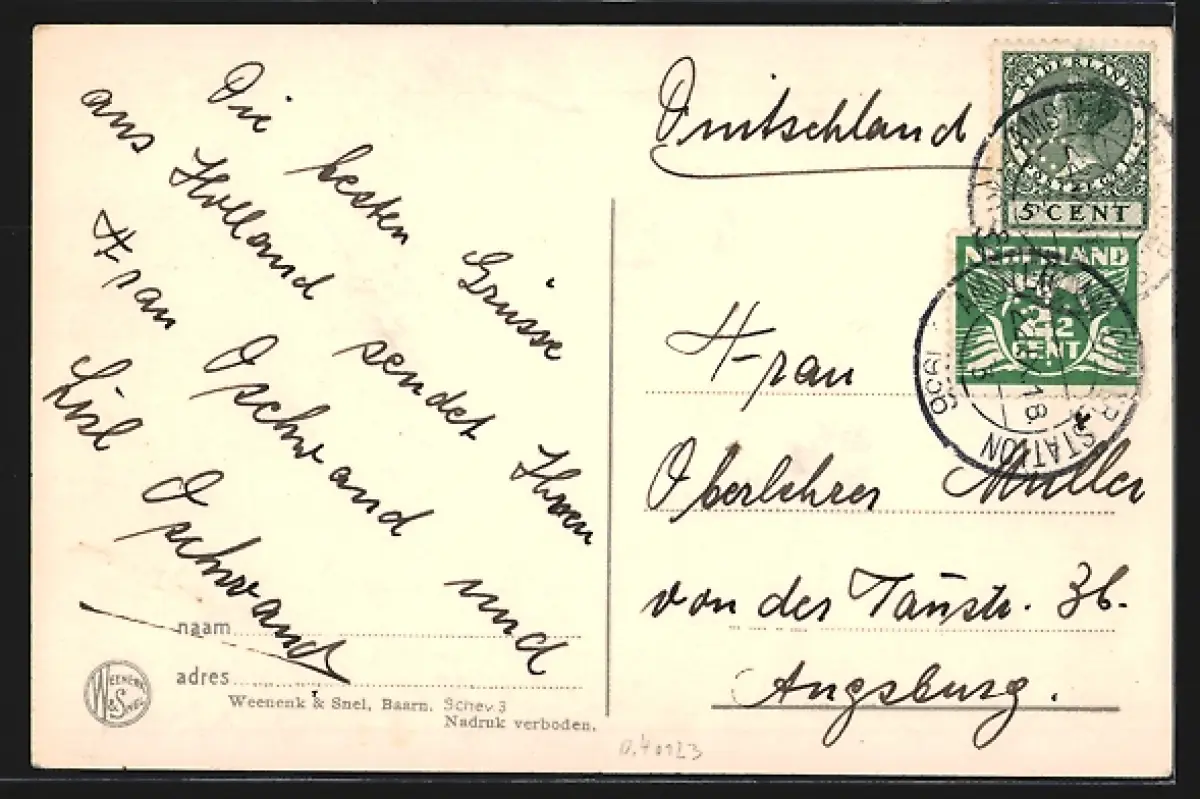 Die besten Grüsse
aus Holland sendet Ihnen
Frau Oschwand und
Lisl Oschwand
naam
adres
WEENENK
& SNEL
Weenenk & Snel, Baarn. Schev. 3
Nadruk verboden.
Deutschland
NEDERLAND
5 CENT
NEDERLAND
2½
CENT
STATION
1936
18
Frau
Oberlehrer Müller
von der Tannstr. 36.
Augsburg.